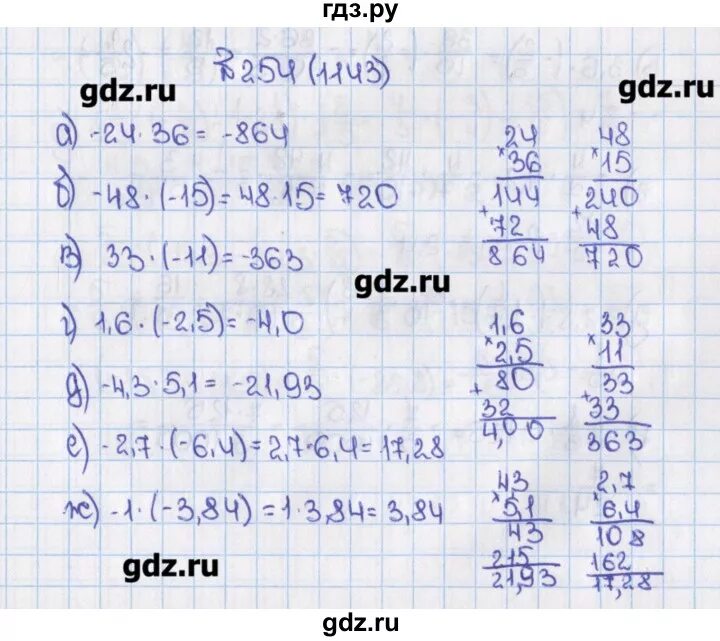 гдз.ру
№254 (1143)
gdz.ru
gdz.ru
а) -24·36 = -864
б) -48·(-15) = 48·15 = 720
в) 33·(-11) = -363
gdz.ru
г) 1,6·(-2,5) = -4,0
д) -4,3·5,1 = -21,93
е) -2,7·(-6,4) = 2,7·6,4 = 17,28
ж) -1·(-3,84) = 1·3,84 = 3,84
24
×36
144
+72
864
48
×15
240
+48
720
1,6
×2,5
80
+32
4,00
33
×11
33
+33
363
43
×5,1
43
215
21,93
2,7
×6,4
108
162
17,28
gdz.ru
gdz.ru